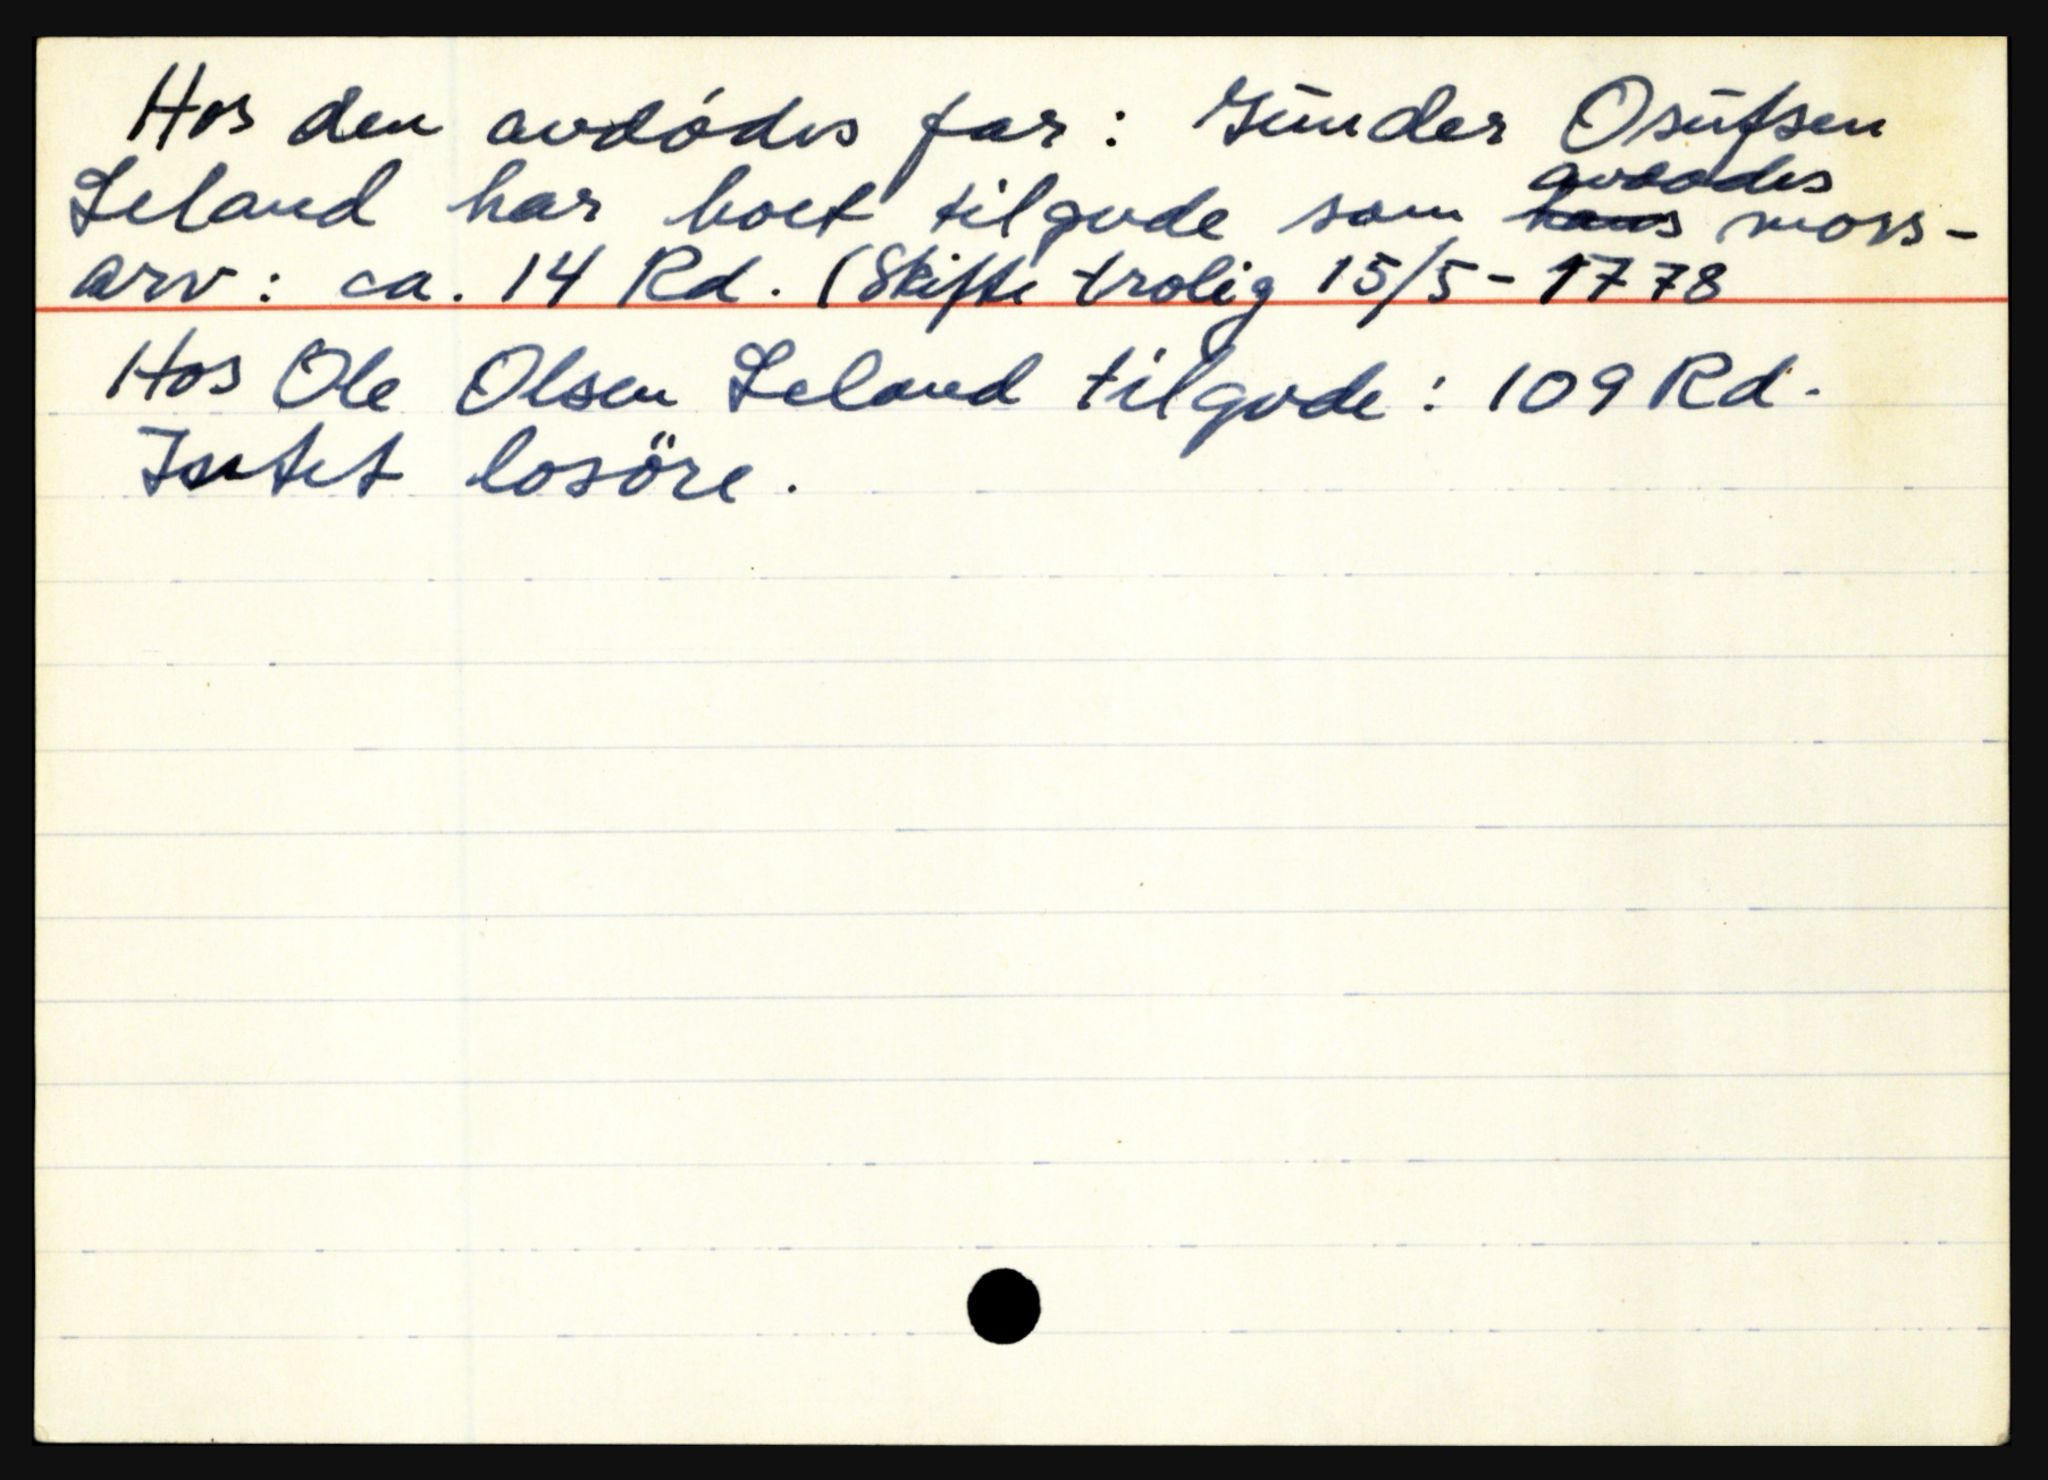 Hos den avdódes far: Gūnder Osūfsen
Leland har boet tilgode som avdødes mors-
arv: ca. 14 Rd. (Skifte trolig 15/5-1778
Hos Ole Olsen Leland tilgode: 109 Rd.
Intet losöre.